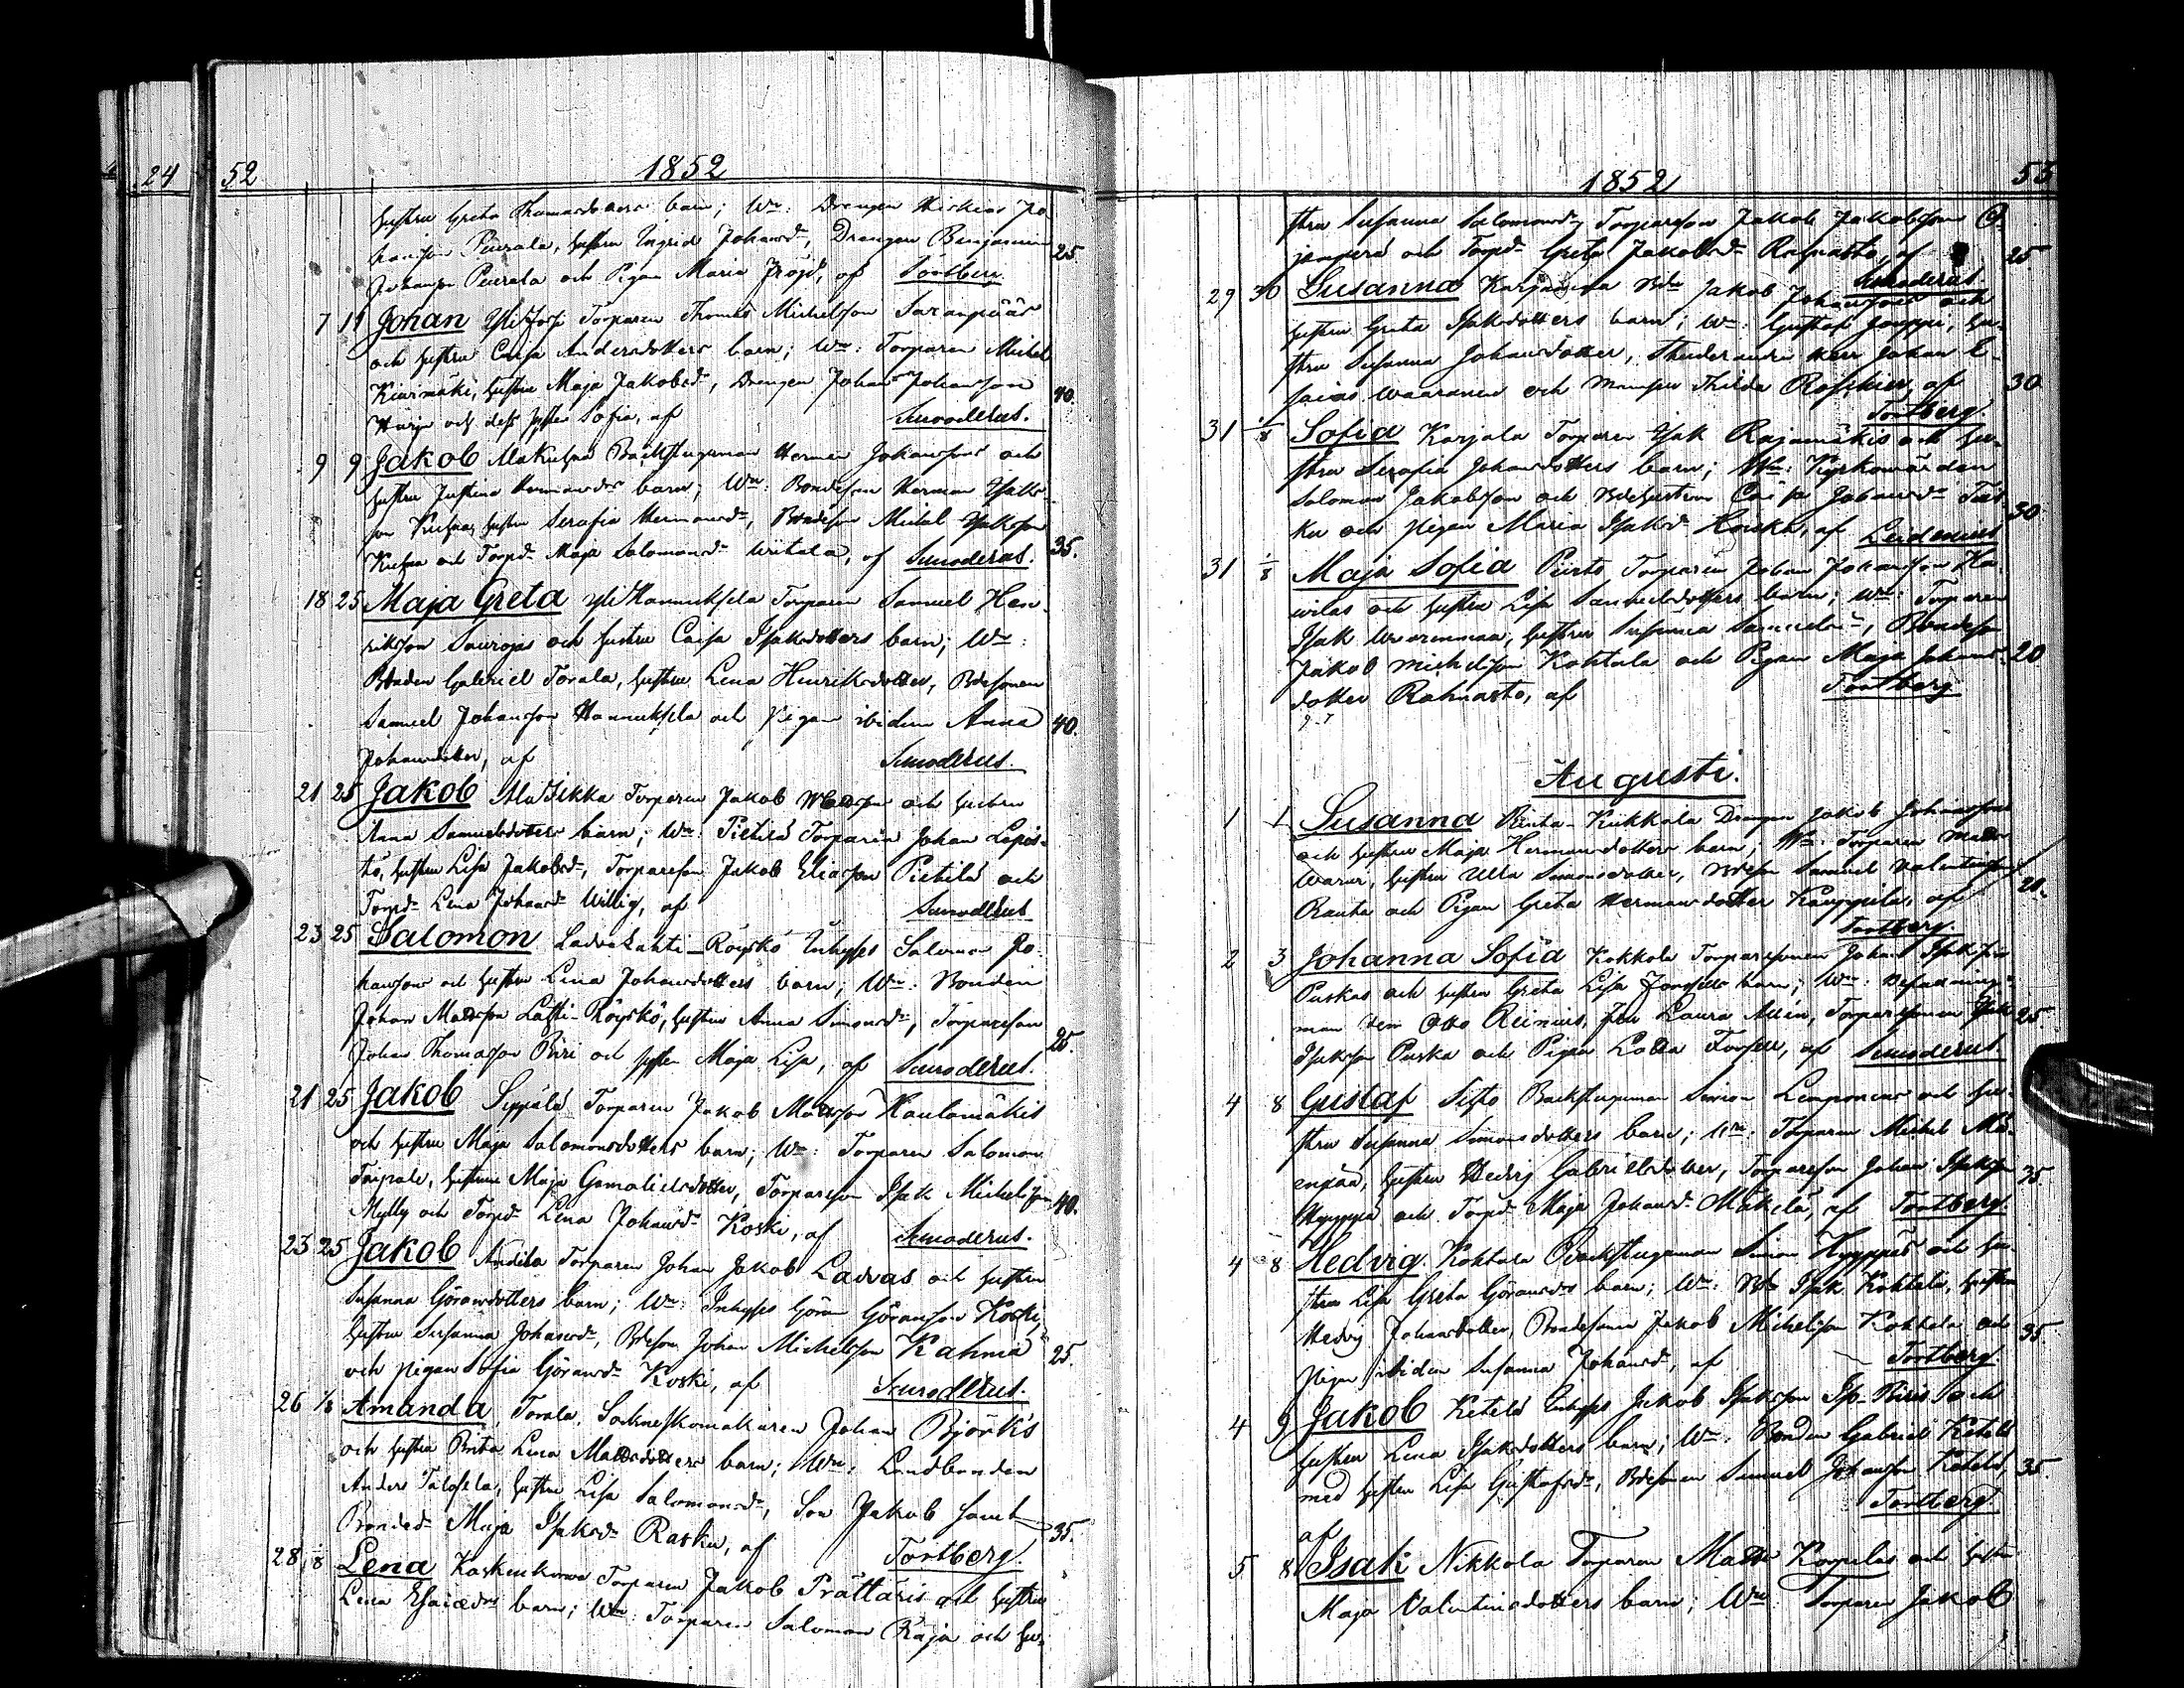 24
52
1852
hustru Greta Thomasdotters barn; Wn: Drengen Jo-
hansson Peurala, hustru Ingrid Johansdr, Drengen Benjamin
Johansson Peurala och Pigan Maria Fröjd, af Tortberg 25.
7 11 Johan Torparen Thomas Michelsson Saranpääs
och hustru Caisa Andersdotters barn; Wn: Torparen Michel
hustru Maja Jakobsdr, Drengen Johan Johansson 40.
Harju och dess syster Sofia, af Snoderus.
9 9 Jakob Backstuguman Herman Johanssons och
hustru Justina Hermansdrs barn; Wn: Bondeson Herman
hustru Serafia Hermansdr, Bondeson Michel
och Torpdr Maja Salomonsdr af Snoderus. 35.
18 25 Maja Greta Yli Hannuksela Torparen Samuel Hen-
riksson och hustru Caisa Isaksdotters barn; Wn:
Bonden Gabriel Torala, hustru Lena Henriksdotter, Bdesonen
Samuel Johansson Hannuksela och Pigan ibidem Anna 40.
Johansdotter, af Snoderus.
21 25 Jakob Torparen Jakob och hustru
Anna Samuelsdotters barn; Wn: Pietilä Torparen Johan Lepis-
tö, hustru Lisa Jakobsdr, Torpareson Jakob Eliasson Pietilä och
Torpdr Lena Johansdr Willig, af Snoderus
23 25 Salomon Röyskö Inhyses Salomon Jo-
hansson och hustru Lena Johansdotters barn; Wn: Bonden
Johan Mattsson Röyskö, hustru Anna Simonsdr, Torpareson
Johan Thomasson Piri och syster Maja Lisa, af Snoderus. 25.
21 25 Jakob Seppälä Torparen Jakob Mattsson Hautamäkis
och hustru Maja Salomonsdotters barn; Wn: Torparen Salomon
Taipale, hustru Maja Gamalielsdotter, Torpareson Isak Michelsson 40.
Mylly och Torpdr Lena Johansdr Koski, af Snoderus.
23 25 Jakob Torparen Johan Jakob Ladvas och hustru
Susanna Göransdotters barn; Wn: Inhyses Göran Göransson Koski,
hustru Susanna Johansdr, Bdeson Johan Michelsson Kahma 25.
och pigan Sofia Göransdr Koski, af Snoderus.
26 1/8 Amanda, Torala, Sockneskomakaren Johan Björks
och hustru Brita Lena Mattsdotters barn; Wn: Landbonden
Anders hustru Lisa Salomonsdr, Son Jakob samt
Bondedr Maja Isaksdr Rasku, af Tortberg. 35.
28 1/8 Lena Koskenkorva Torparen Jakob Prättäris och hustru
Lena Esaiædrs barn; Wn: Torparen Salomon Raja och hu-
1852
53
stru Susanna Salomonsdr, Torpareson Jakob Jakobsson O-
janperä och Torpdr Greta Jakobsdr Rahnasto, af Snoderus 25.
29 30 Susanna Karjanlaa Bdn Jakob Johanssons och
hustru Greta Isaksdotters barn; Wn: Gustaf Jouppi, hu-
stru Susanna Johansdotter, Studeranden Herr Johan E-
saias Waaranen och Mamsell Thilda Roschier, af Tortberg. 30
31 1/8 Sofia Karjala Torparen Isak Rajamäkis och hu-
stru Serafia Johansdotters barn; Wn: Kyrkowärden
Salomon Jakobsson och Bdehustrun Caisa Johansdr
och pigan Maria Isaksdr Hoiska, af Leidenius 30
31 1/8 Maja Sofia Peurto Torparen Johan Johansson
och hustru Lisa Samuelsdotters barn; Wn: Torparen
Isak Wuorenmaa, hustru Susanna Samuelsdr, Bondeson
Jakob Michelsson Kohtala och Pigan Maja Johans- 20
dotter Rahnasto, af Tortberg
Augusti.
1 1 Susanna Ranta-Kiikkala Drengen Jakob Johanssons
och hustru Maja Hermansdotters barn; Wn: Torparen Matts
hustru Ulla Simonsdotter, Bdeson Samuel Valentinsson
Ranta och Pigan Greta Hermansdotter Kauppila, af Tortberg. 20.
2 3 Johanna Sofia Kokkola Torparesonen Johan Isaksson
Puskas och hustru Greta Lisa Forssells barn; Wn: Befallnings-
man Herr Otto Reinius, Fru Laura Alén, Torparesonen Isak 25
Isaksson Puska och Pigan Lotta Forssell, af Snoderus.
4 8 Gustaf Sippo Backstuguman Simon Lemponens och hu-
stru Susanna Simonsdotters barn; Wn: Torparen Michel Mä-
enpää, hustru Hedvig Gabrielsdotter, Torpareson Johan Isaksson 35
Hyyppä och Torpdr Maja Johansdr Mäkelä, af Tortberg.
4 8 Hedvig. Kohtala Backstuguman Simon Hyyppäs och hu-
stru Lisa Greta Göransdrs barn; Wn: Bdn Isak Kohtala, hustru
Hedvig Johansdotter, Bondesonen Jakob Michelsson Kohtala och 35
Pigan ibidem Susanna Johansdr, af Tortberg
4 9 Jakob Ketelä Inhyses Jakob Isaksson Iso-Piris och
hustru Lena Isaksdotters barn; Wn: Bonden Gabriel Ketelä
med hustru Lisa Gustafsdr, Bdesonen Samuel Johansson Ketelä, 35
af Tortberg.
5 8 Isak Nikkola Torparen Matts Korpelas och hustru
Maja Valentinsdotters barn; Wn: Torparen Jakob